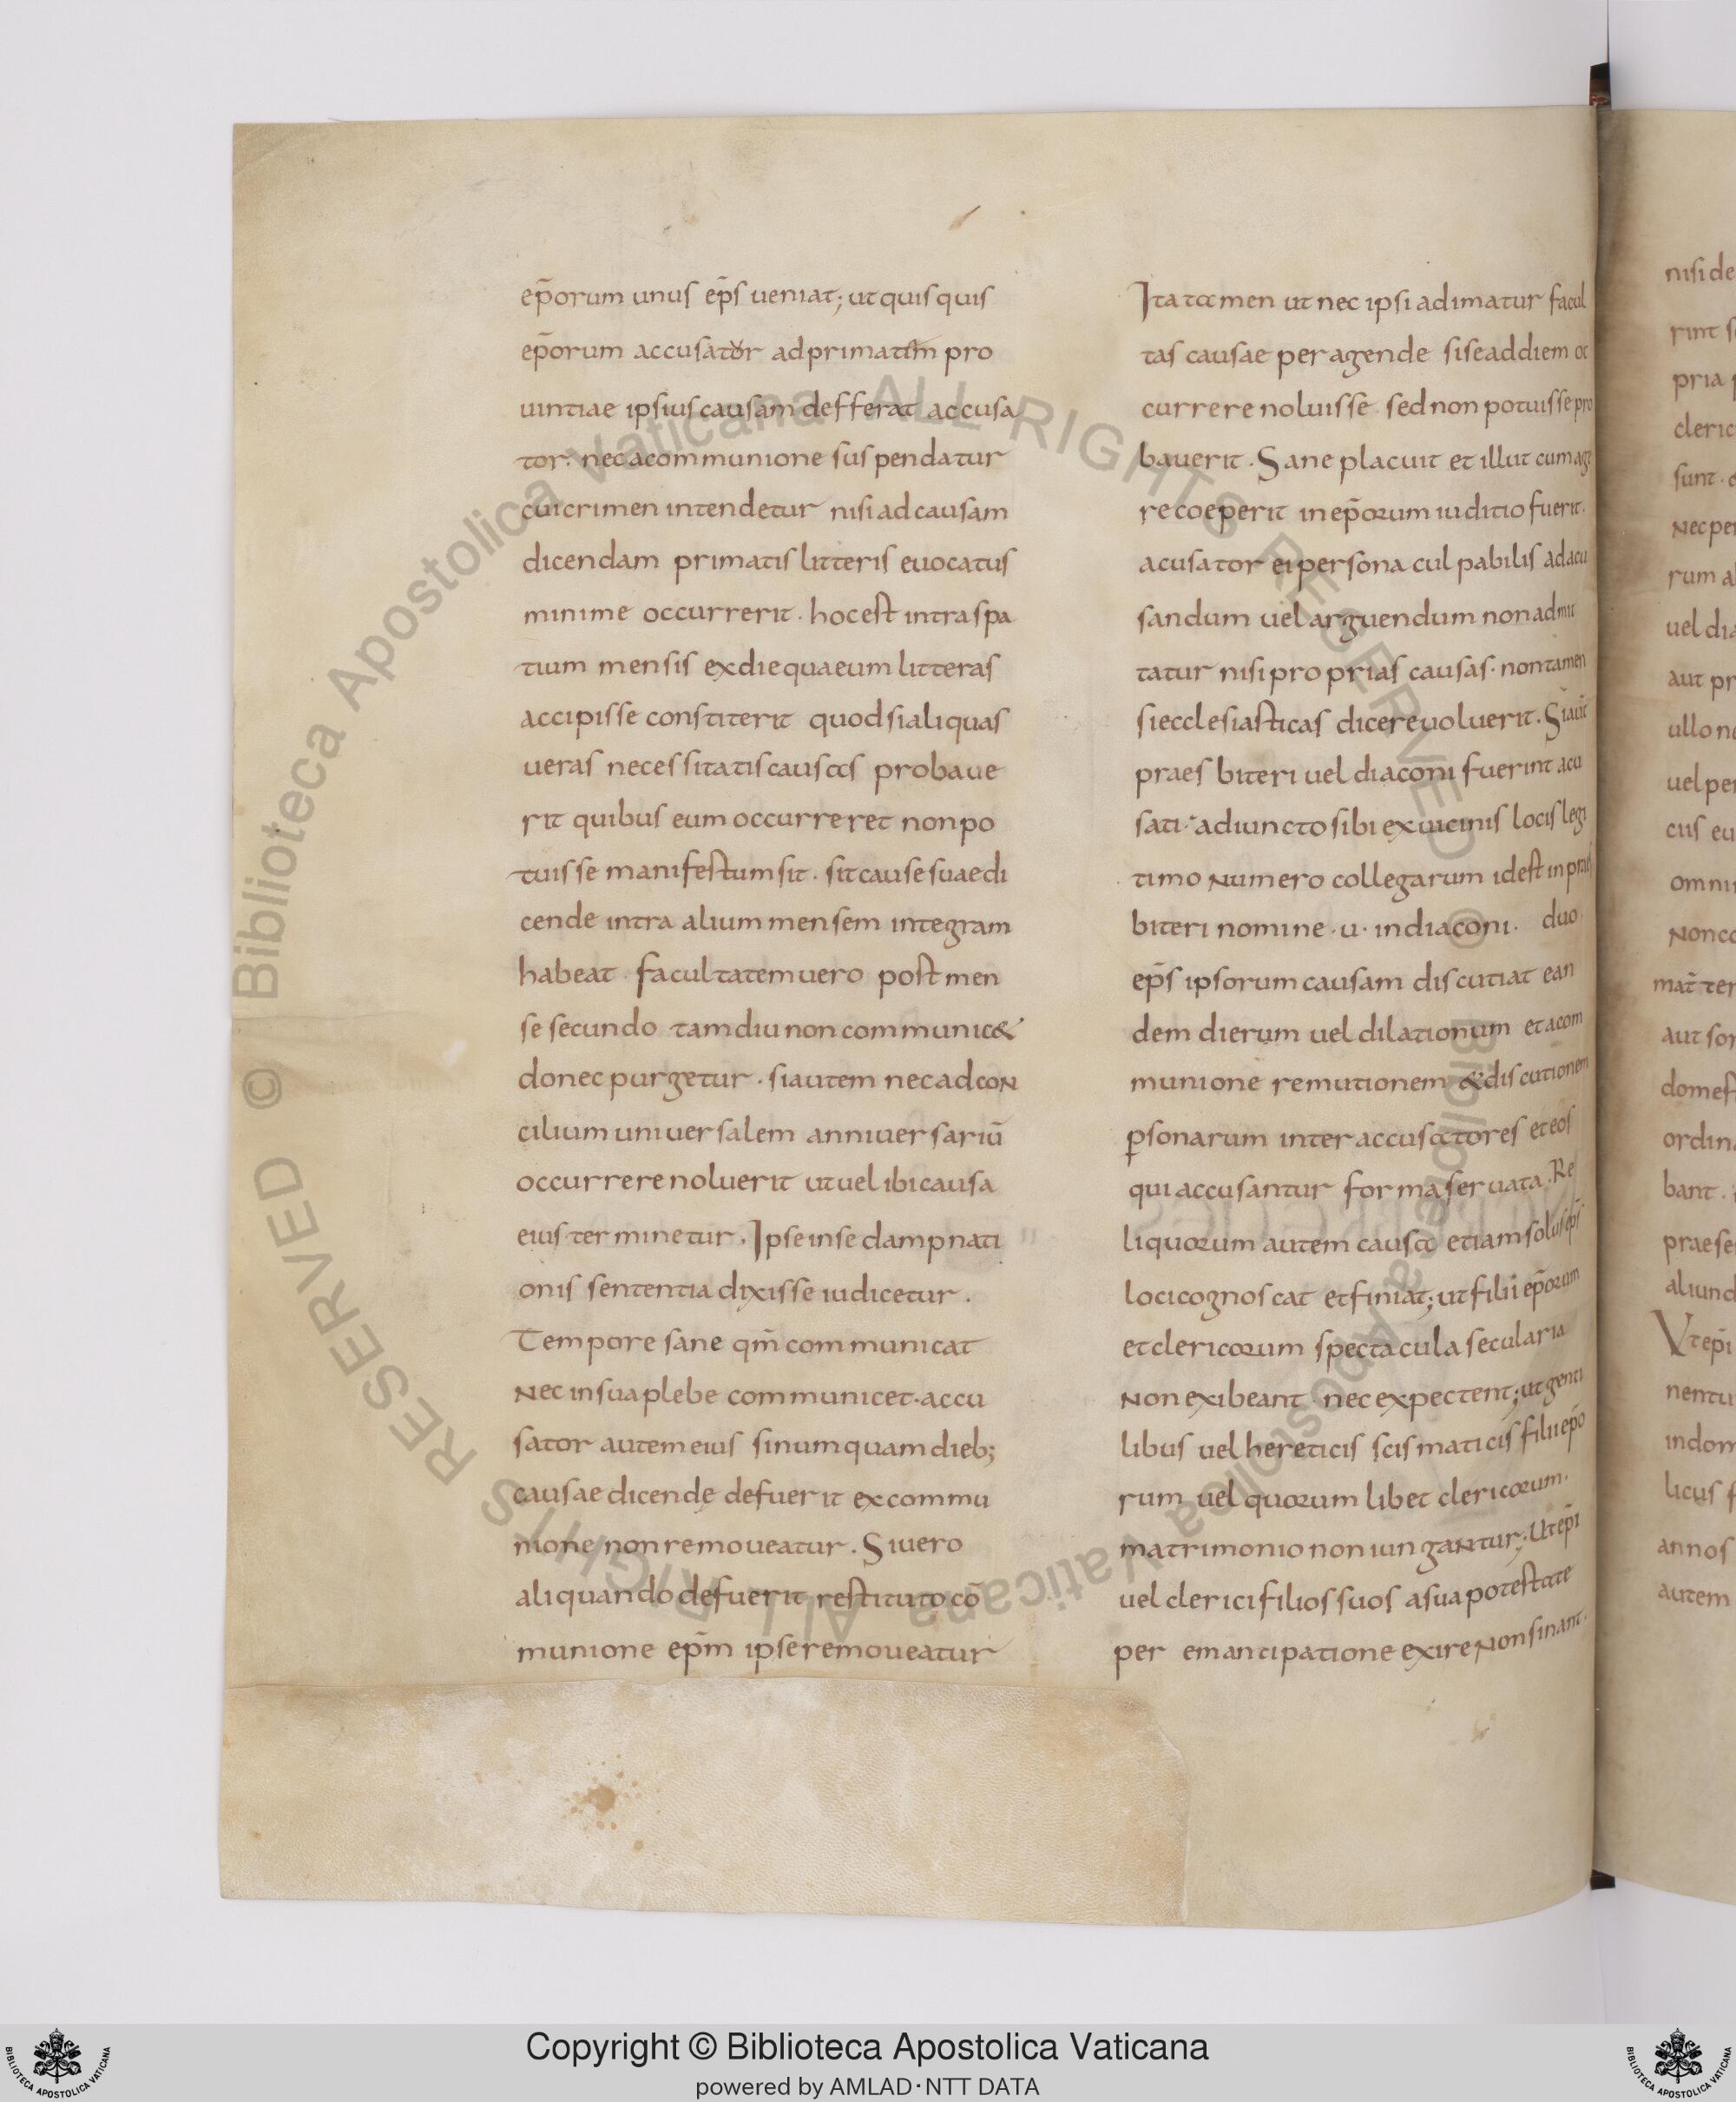 ep̄orum unus ep̄s ueniat; ut quis quis
ep̄orum accusator ad primatem pro
uintiae ipsius causam defferat accusa
tor. nec acommunione suspendatur
cui crimen intendetur nisi ad causam
dicendam primatis litteris euocatus
minime occurrerit. hoc est intra spa
tium mensis ex die quaeum litteras
accipisse constiterit quod si aliquas
ueras necessitatis causas probaue
rit quibus eum occurreret non po
tuisse manifestum sit. sit cause suae di
cende intra alium mensem integram
habeat facultatem uero post men
se secundo tamdiu non communic&
donec purgetur. si autem nec ad con
cilium uniuersalem anniuersariū
occurrere noluerit ut uel ibi causa
eius terminetur. Ipse in se dampnati
onis sententia dixisse iudicetur.
Tempore sane qm̄ communicat
Nec in sua plebe communicet. accu
sator autem eius si numquam dieb;
causae dicende defuerit excommu
nione non remoueatur. Si uero
aliquando defuerit restituto cō
munione ep̄m ipse remoueatur
Ita tamen ut nec ipsi adimatur facul
tas causae peragende si se ad diem oc
currere noluisse. sed non potuisse pro
bauerit. Sane placuit et illut cum age
re coeperit in ep̄orum iuditio fuerit.
acusator ei persona culpabilis ad acu
sandum uel arguendum non admit
tatur nisi proprias causas. non tamen
si ecclesiasticas dicere uoluerit. Si aūt
praesbiteri uel diaconi fuerint acu
sati. adiuncto sibi ex uicinis locis legi
timo Numero collegarum id est in praes
biteri nomine .u. in diaconi. duo.
ep̄s ipsorum causam discutiat ean
dem dierum uel dilationum et acom
munione remutionem & discutionem
p̱sonarum inter accusatores et eos
qui accusantur forma seruata. Re
liquorum autem causa etiam solus ep̄s
loci cognoscat et finiat; ut filii ep̄orum
et clericorum spectacula secularia
Non exibeant nec expectent; ut genti
libus uel hereticis scismaticis filii ep̄o
rum uel quorum libet clericorum.
matrimonio non iungantur; Ut ep̄i
uel clerici filios suos a sua potestate
per emancipatione exire Non sinant.
nisi de
rint s
pria p
cleric
sunt.
Nec per
rum al
uel dia
aut pr
ullo ne
uel per
cus eu
omni
Non co
mat̄ ter
aut sor
domest
ordina
bant.
praese
aliund
Vt ep̄i
nentu
indom
licus f
annos
autem
© Biblioteca Apostolica Vaticana ALL RIGHTS RESERVED © Biblioteca Apostolica Vaticana ALL RIGHTS RESERVED
Copyright © Biblioteca Apostolica Vaticana
powered by AMLAD·NTT DATA
BIBLIOTECA APOSTOLICA VATICANA
BIBLIOTECA APOSTOLICA VATICANA